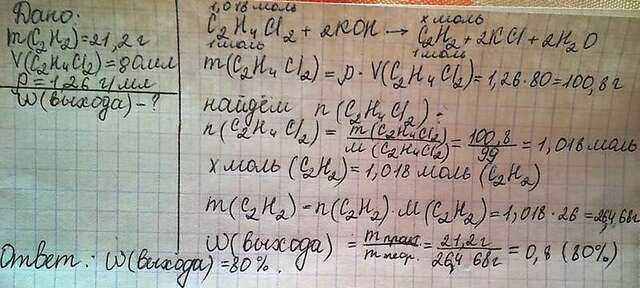 Дано:
m(C₂H₂)=21,2г
V(C₂H₄Cl₂)=80мл
ρ=1,26 г/мл
W(выхода)-?
1,018 моль х моль
C₂H₄Cl₂ + 2KOH → C₂H₂ + 2KCl + 2H₂O
1моль 1моль
m(C₂H₄Cl₂)=ρ·V(C₂H₄Cl₂)=1,26·80=100,8г
найдём n(C₂H₄Cl₂):
n(C₂H₄Cl₂)=m(C₂H₄Cl₂)/M(C₂H₄Cl₂)=100,8/99=1,018моль
х моль(C₂H₂)=1,018 моль(C₂H₂)
m(C₂H₂)=n(C₂H₂)·M(C₂H₂)=1,018·26=26,468г
W(выхода)=m практ./m теор.=21,2г/26,468г=0,8(80%)
Ответ: W(выхода)=80%.